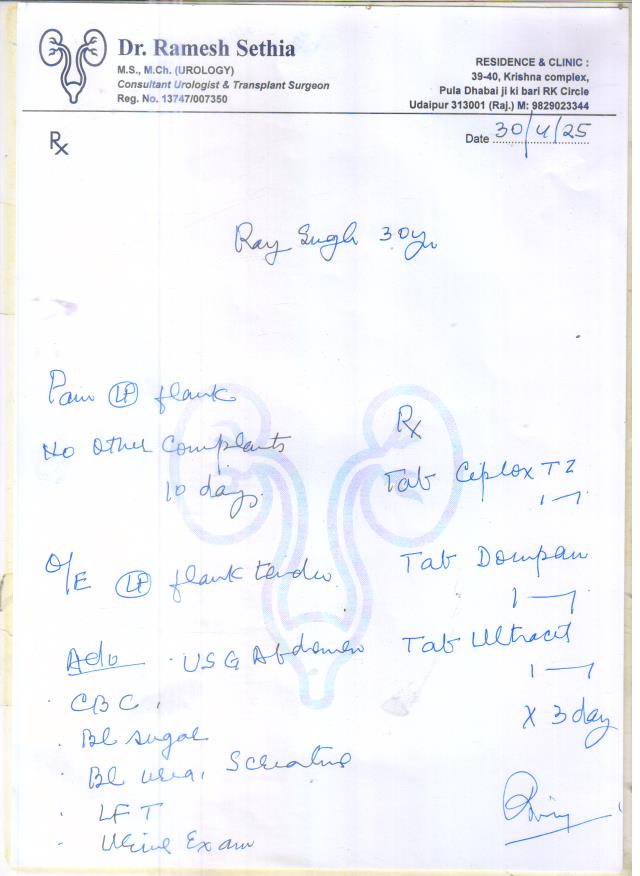 Dr. Ramesh Sethia
M.S., M.Ch. (UROLOGY)
Consultant Urologist & Transplant Surgeon
Reg. No. 13747/007350
RESIDENCE & CLINIC :
39-40, Krishna complex,
Pula Dhabai ji ki bari RK Circle
Udaipur 313001 (Raj.) M: 9829023344
Date 30/4/25
Rx
Ray Singh 30yr
Pain LP flank
No other Complants
10 days.
O/E LP flank tender
Adv · USG Abdomen
· CBC,
· Bl sugar
· Bl urea, S creatine
· LFT
· Urine Exam
Rx
Tab Ciplox TZ
1 — 1
Tab Dompan
1 — 1
Tab Ultracet
1 — 1
X 3 day